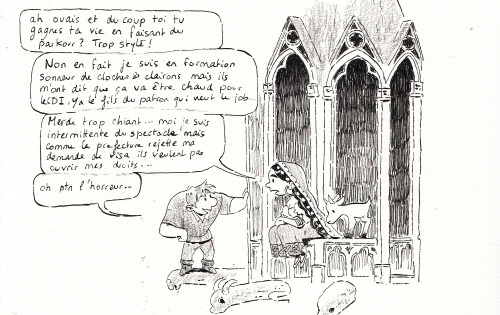 ah ouais et du coup toi tu
gagnes ta vie en faisant du
parkour ? Trop stylé !
Non en fait je suis en formation
Sonneur de cloches & clairons mais ils
m'ont dit que ça va être chaud pour
le CDI, ya le fils du patron qui veut le job...
Merde trop chiant... moi je suis
intermittente du spectacle mais
comme la préfecture rejette ma
demande de visa ils veulent pas
ouvrir mes droits...
oh ptn l'horreur...